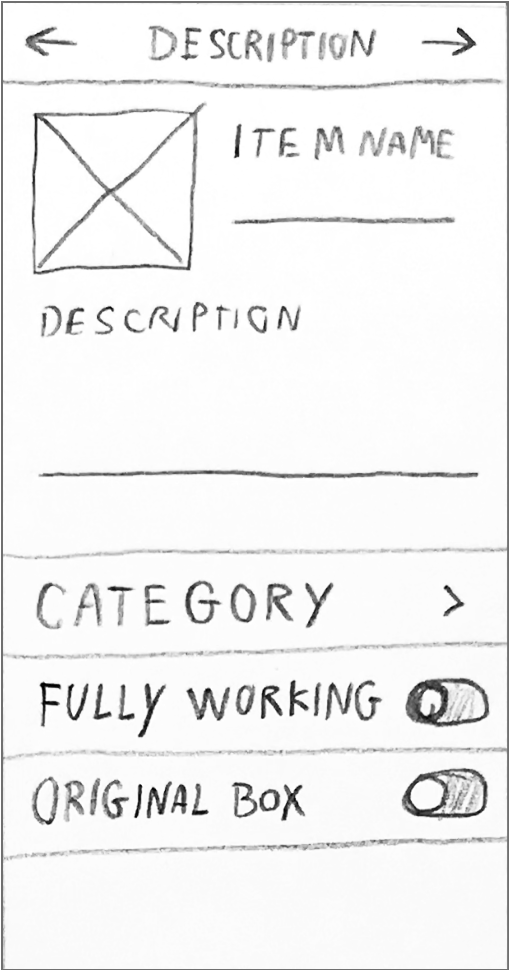 DESCRIPTION
ITEM NAME
DESCRIPTION
CATEGORY
FULLY WORKING
ORIGINAL BOX